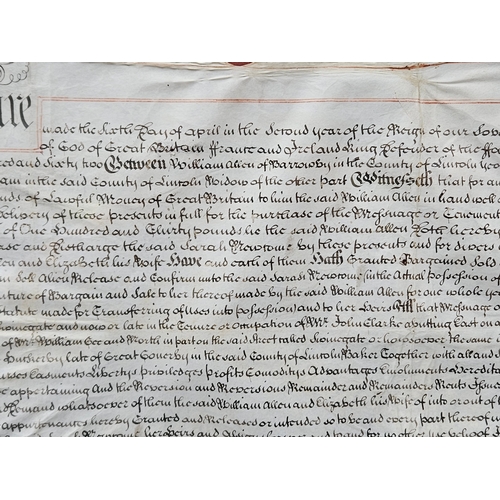 made the Sixth Day of April in the Second year of the Reign of our Sov
of God of Great Britain France and Ireland King Defender of the
red and Sixty two Between William Allen of Barrowby in the County of Lincoln
am in the said County of Lincoln Widow of the other part Witnesseth that for a
nds of Lawful Money of Great Britain to him the said William Allen in hand well
Delivery of these presents in full for the purchase of the Messuage or Tenement
of One Hundred and Thirty pounds he the said William Allen Doth hereby
ase and Discharge the said Sarah Newtome by these presents and for divers
len and Elizabeth his Wife Have and each of them Hath Granted Bargained Sold
in Sell Alien Release and Confirm unto the said Sarah Newtome in the Actual Possession of
nture of Bargain and Sale to her thereof made by the said William Allen for one whole y
Statute made for Transferring of Uses into possession) and to her Heirs All that Messuage o
and now or late in the Tenure or Occupation of Mr. John Clarke abutting East on
of Mr. William Gee and North in part on the said Street called Swinegate or howsoever the same
by late of Gonerby in the said County of Lincoln Baker Together with all and
Easments Libertys Priviledges Profits Comoditys Advantages Emoluments Heredita
e appertaining and the Reversion and Reversions Remainder and Remainders Rents
Demand whatsoever of them the said William Allen and Elizabeth his Wife of into or out of
appurtenances hereby Granted and Released or intended so to be and every part thereof
her Heirs and Assigns and for no other use